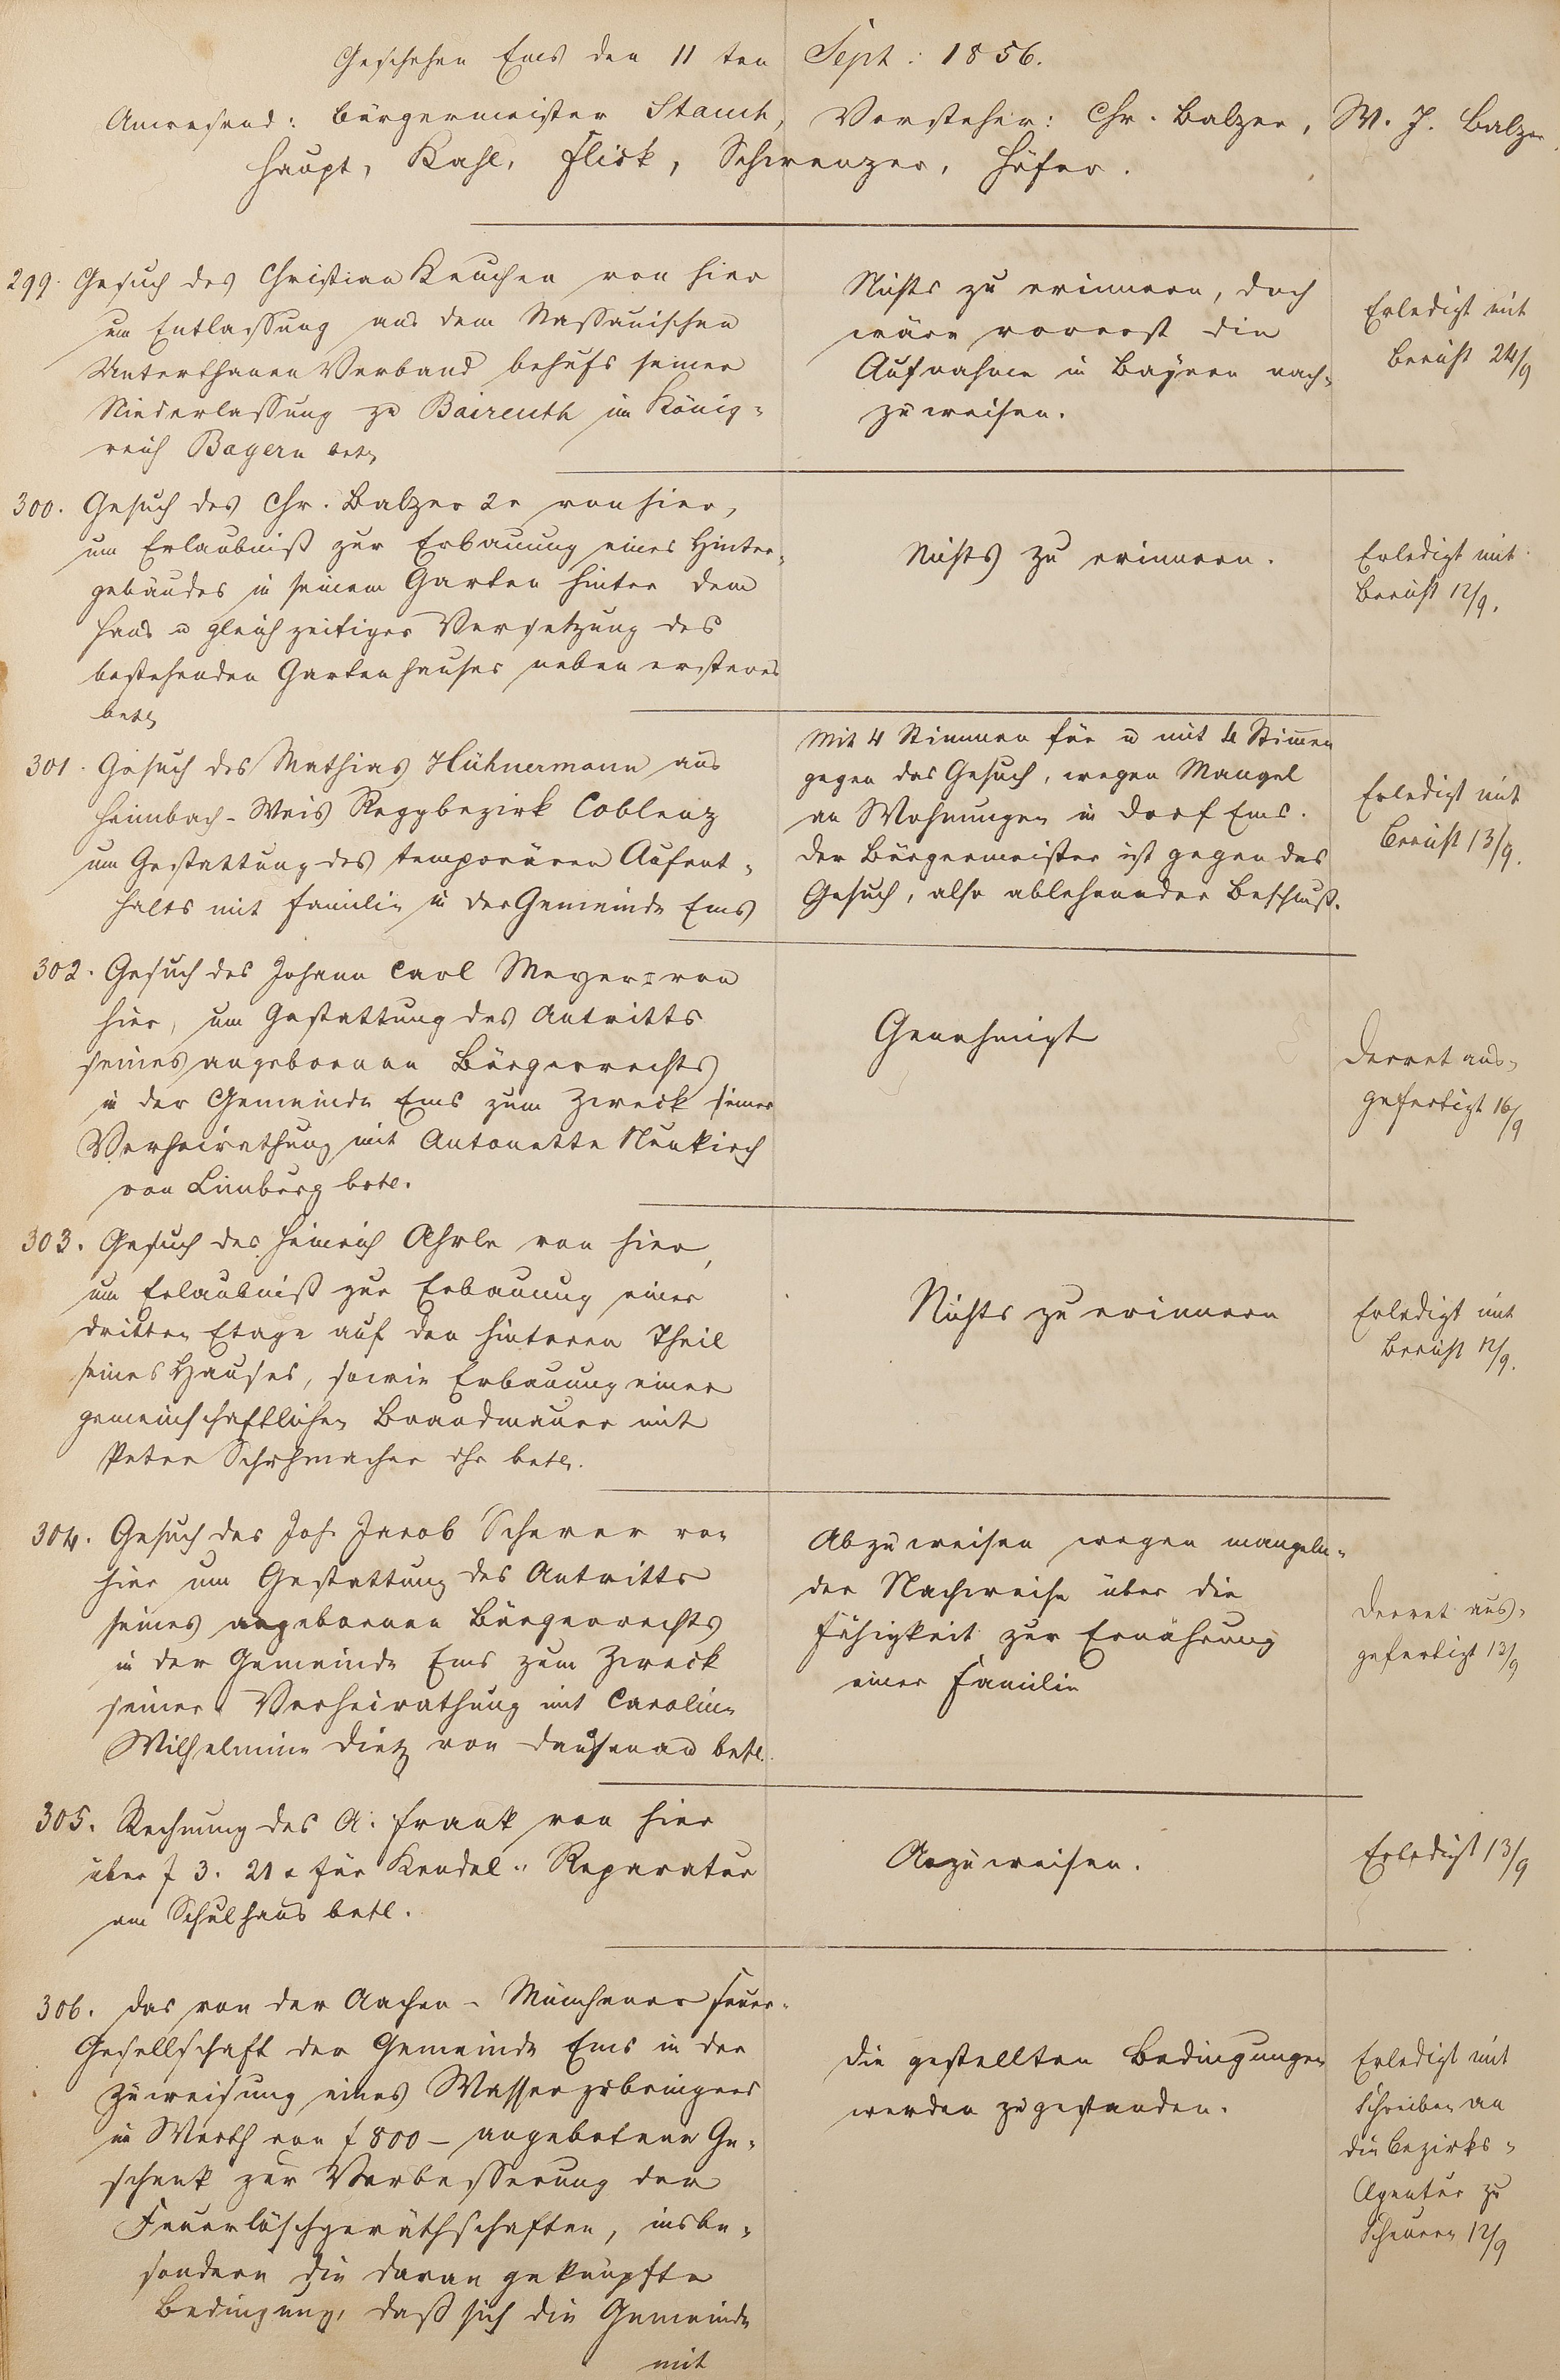 Geschehen Ems den 11ten Sept: 1856.
Anwesend: Bürgermeister Stamh, Vorsteher: Chr. Balzer, W. J. Balzer
Haupt, Kahl, Flick, Schwenzer, Höfer.
299. Gesuch des Christian Keuchen von hier
um Entlassung aus dem Nassauischen
Unterthanen Verband behufs seiner
Niederlassung zu Baireuth im König-
reich Bayern betr
Nichts zu erinnern, doch
wäre vorerst die
Aufnahme in Bayern nach-
zuweisen.
Erledigt mit
Bericht 24/9
300. Gesuch des Chr. Balzer 2r von hier,
um Erlaubniß zur Erbauung eines Hinter-
gebäudes in seinem Garten hinter dem
Haus u gleichzeitiger Versetzung des
bestehenden Gartenhauses neben ersteres
betr
Nichts zu erinnern.
Erledigt mit
Bericht 12/9.
301. Gesuch des Mathias Hühnermann aus
Heimbach-Weis Reggbezirk Coblenz
um Gestattung des temporären Aufent-
halts mit Familie in der Gemeinde Ems
Mit 4 Stimmen für u mit 4 Stimen
gegen das Gesuch, wegen Mangel
an Wohnungen in Dorf Ems.
Der Bürgermeister ist gegen das
Gesuch, also ablehnender Beschluß.
Erledigt mit
Bericht 13/9.
302. Gesuch des Johann Carl Meyer I von
hier, um Gestattung des Antritts
seines angebornen Bürgerrechts
in der Gemeinde Ems zum Zweck seiner
Verheirathung mit Antonette Neukirch
von Limburg betr.
Genehmigt
Decret aus-
gefertigt 16/9
303. Gesuch des Heinrich Ahrle von hier,
um Erlaubniß zur Erbauung einer
dritten Etage auf den hinteren Theil
seines Hauses, sowie Erbauung einer
gemeinschaftlichen Brandmauer mit
Peter Schuhmacher betr.
Nichts zu erinnern
Erledigt mit
Bericht 12/9.
304. Gesuch des Joh. Jacob Scherer von
hier um Gestattung des Antritts
seines angebornen Bürgerrechts
in der Gemeinde Ems zum Zweck
seiner Verheirathung mit Caroline
Wilhelmine Dietz von Dausenau betr.
Abzuweisen wegen mangeln-
der Nachweise über die
Fähigkeit zur Ernährung
einer Familie
Decret aus-
gefertigt 13/9
305. Rechnung des A. Frank von hier
über f 3. 21 x für Kendel- Reparatur
am Schulhaus betr.
Anzuweisen.
Erledigt 13/9
306. Das von der Aachen-Münchener Feuer-
Gesellschaft der Gemeinde Ems in der
Zuweisung eines Wasserzubringers
im Werth von f 800 - angebotene Ge-
schenk zur Verbesserung der
Feuerlöschgeräthschaften, insbe-
sondere die daran geknüpfte
Bedingung, daß sich die Gemeinde
mit
Die gestellten Bedingungen
werden zugestanden.
Erledigt mit
Schreiben an
die Bezirks-
Agentur zu
Scheuern 12/9